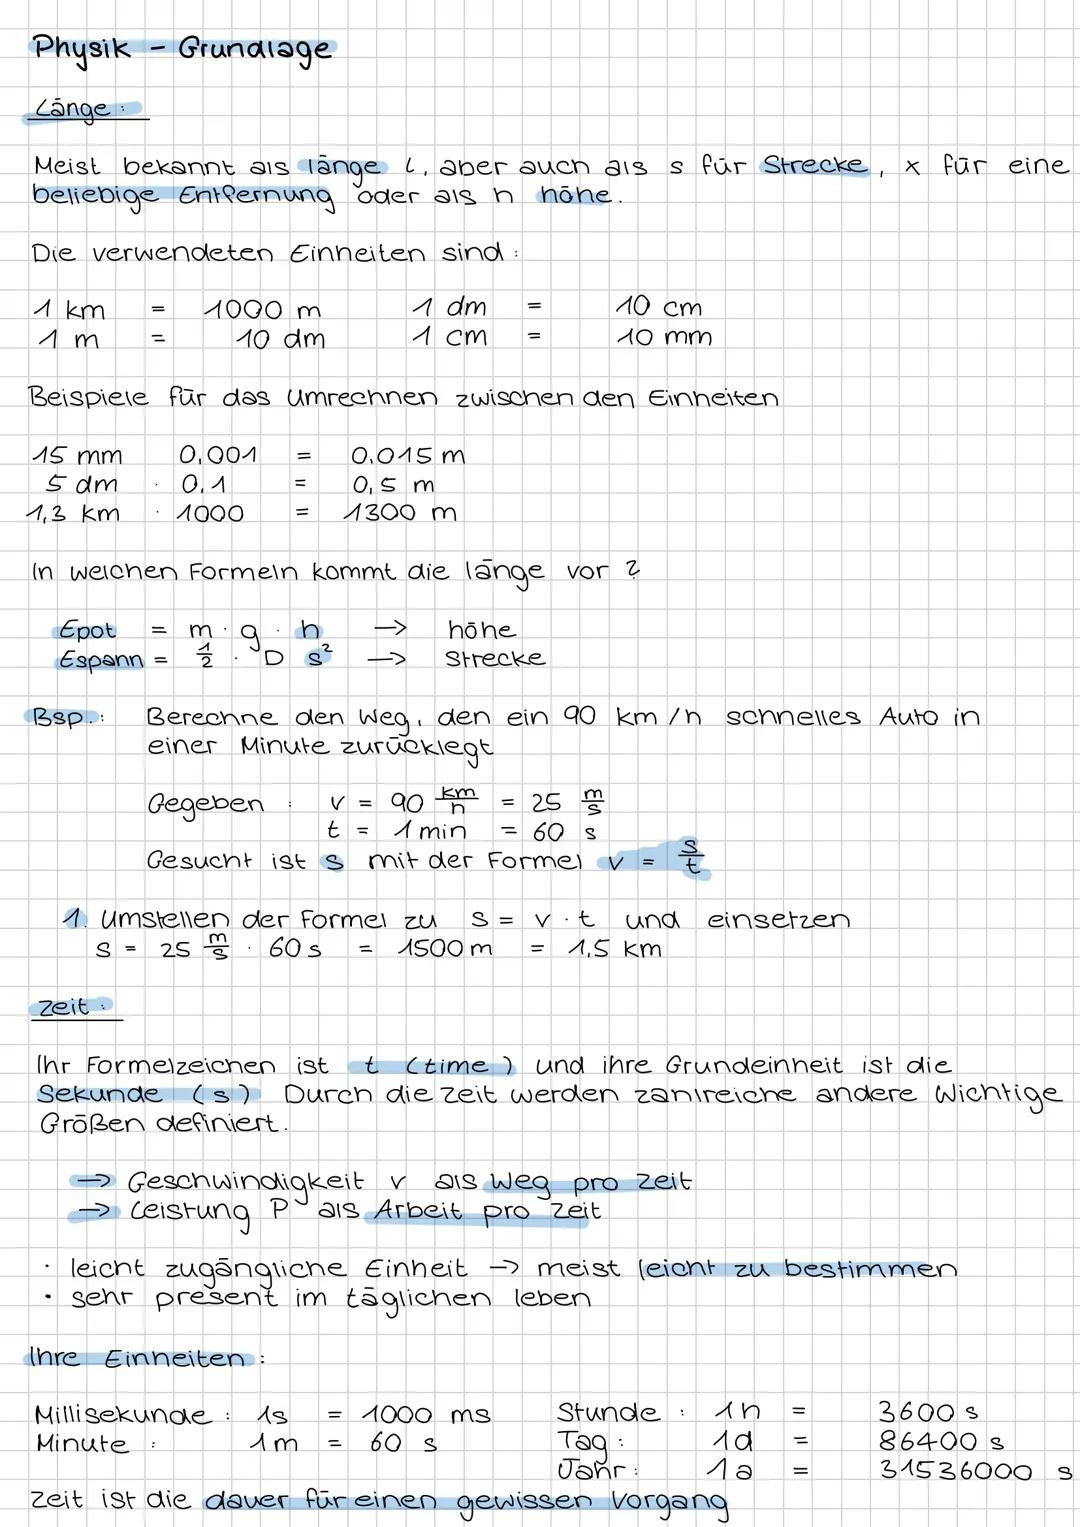 Physik - Grundlage
Länge:
Meist bekannt als länge l, aber auch als s für Strecke, x für eine
beliebige Entfernung oder als h höhe.
Die verwendeten Einheiten sind:
1 km = 1000 m 1 dm = 10 cm
1 m = 10 dm 1 cm = 10 mm
Beispiele für das Umrechnen zwischen den Einheiten
15 mm 0,001 = 0,015 m
5 dm · 0,1 = 0,5 m
1,3 km · 1000 = 1300 m
In welchen Formeln kommt die länge vor ?
Epot = m · g · h → höhe
Espann = 1/2 · D s² → Strecke
Bsp.: Berechne den Weg, den ein 90 km/h schnelles Auto in
einer Minute zurücklegt
Gegeben : v = 90 km/h = 25 m/s
t = 1 min = 60 s
Gesucht ist s mit der Formel v = s/t
1. Umstellen der Formel zu s = v · t und einsetzen
s = 25 m/s · 60 s = 1500 m = 1,5 km
Zeit:
Ihr Formelzeichen ist t (time) und ihre Grundeinheit ist die
Sekunde (s) Durch die Zeit werden zahlreiche andere Wichtige
Größen definiert.
→ Geschwindigkeit v als Weg pro Zeit
→ Leistung P als Arbeit pro Zeit
· leicht zugängliche Einheit → meist leicht zu bestimmen
· sehr present im täglichen leben
Ihre Einheiten:
Millisekunde : 1s = 1000 ms Stunde : 1h = 3600 s
Minute : 1m = 60 s Tag : 1d = 86400 s
Jahr : 1a = 31536000 s
Zeit ist die dauer für einen gewissen Vorgang